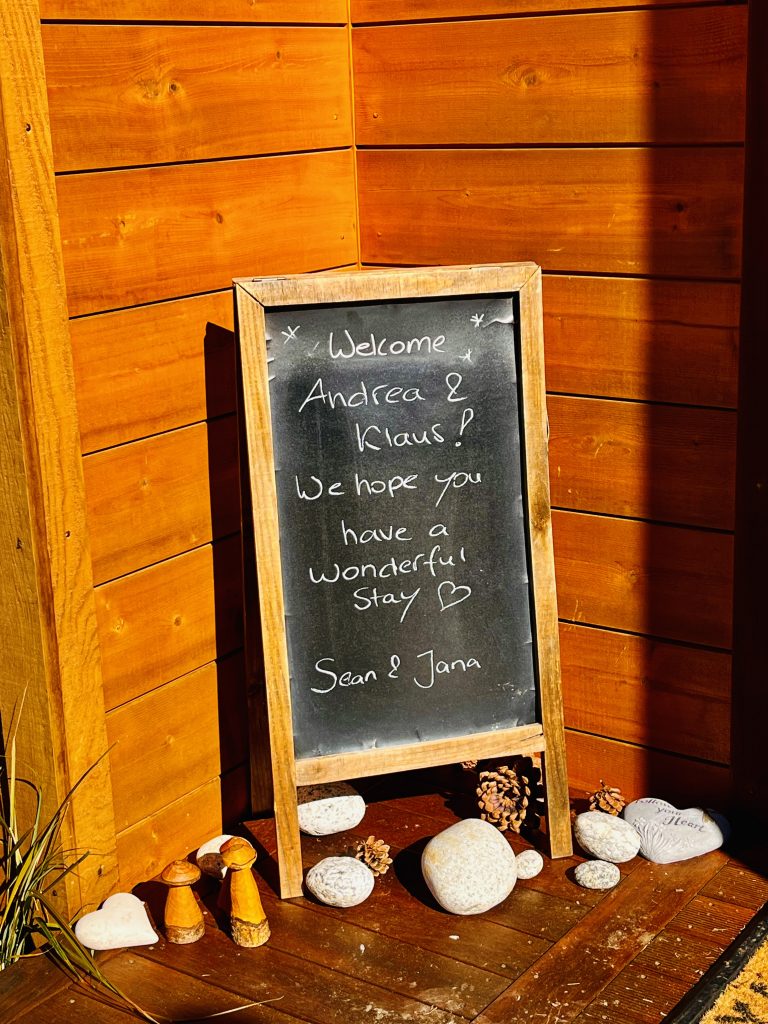 Welcome
Andrea &
Klaus!
We hope you
have a
Wonderful
Stay ♡
Sean & Jana
Follow
your
Heart